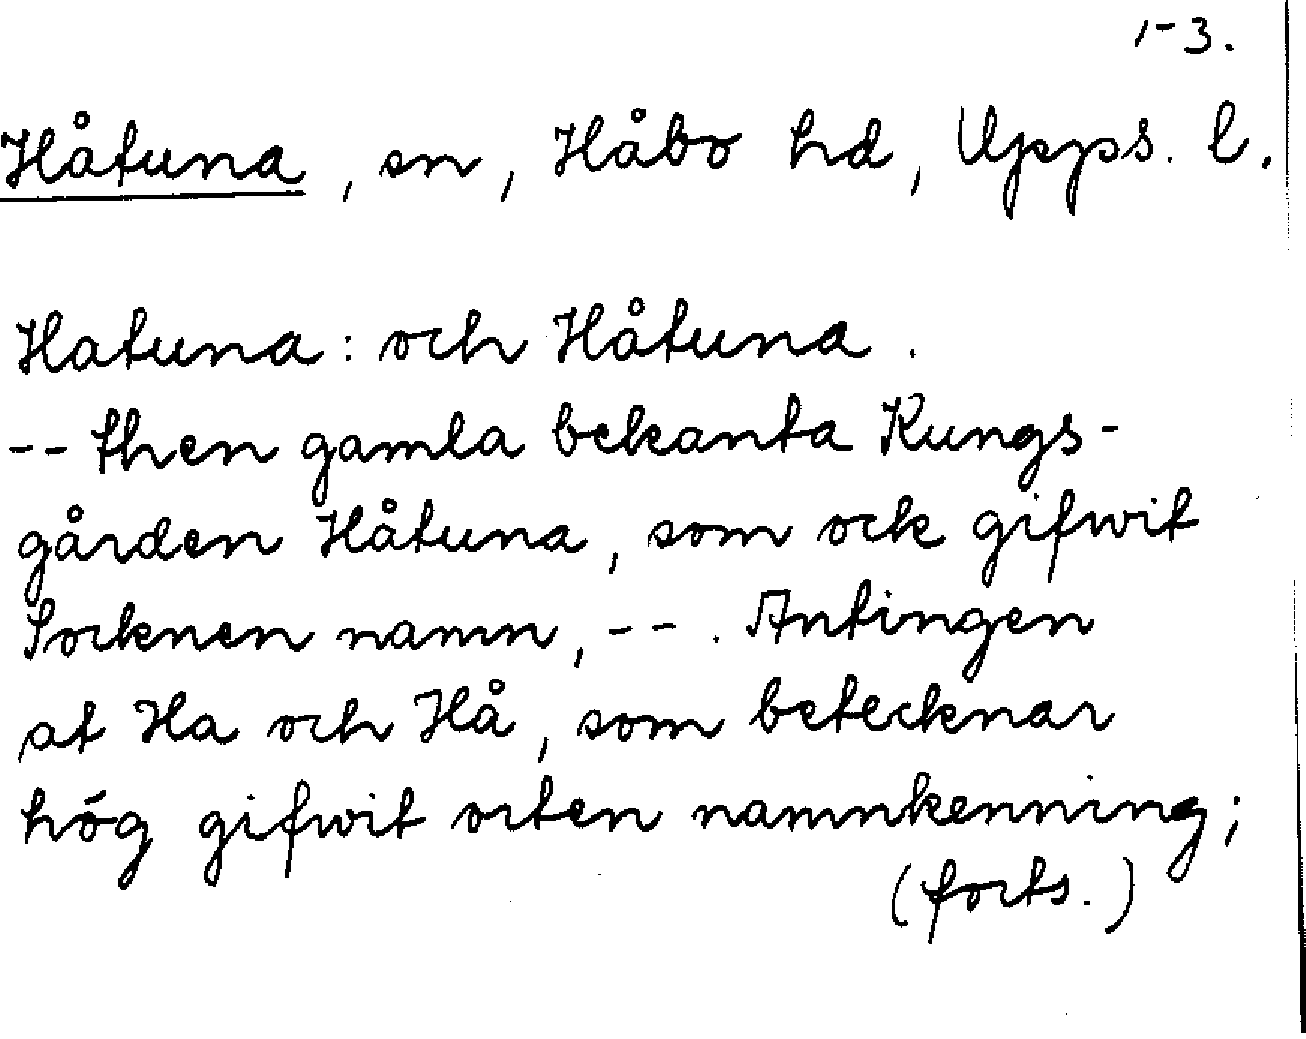 1-3.
Håtuna, sn, Håbo hd, Upps. l.
Hatuna: och Håtuna.
-- then gamla bekanta Kungs-
gården Håtuna, som ock gifwit
Socknen namn, --. Antingen
at Ha och Hå, som betecknar
hög gifwit orten namnkenning;
(forts.)